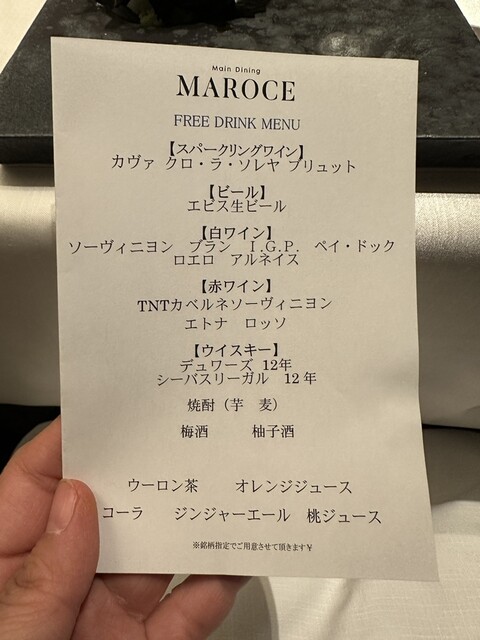 Main Dining
MAROCE
FREE DRINK MENU
【スパークリングワイン】
カヴァ クロ・ラ・ソレヤ ブリュット
【ビール】
エビス生ビール
【白ワイン】
ソーヴィニヨン ブラン I.G.P. ペイ・ドック
ロエロ アルネイス
【赤ワイン】
TNTカベルネソーヴィニヨン
エトナ ロッソ
【ウイスキー】
デュワーズ 12年
シーバスリーガル 12年
焼酎（芋 麦）
梅酒 柚子酒
ウーロン茶 オレンジジュース
コーラ ジンジャーエール 桃ジュース
※銘柄指定でご用意させて頂きます￥